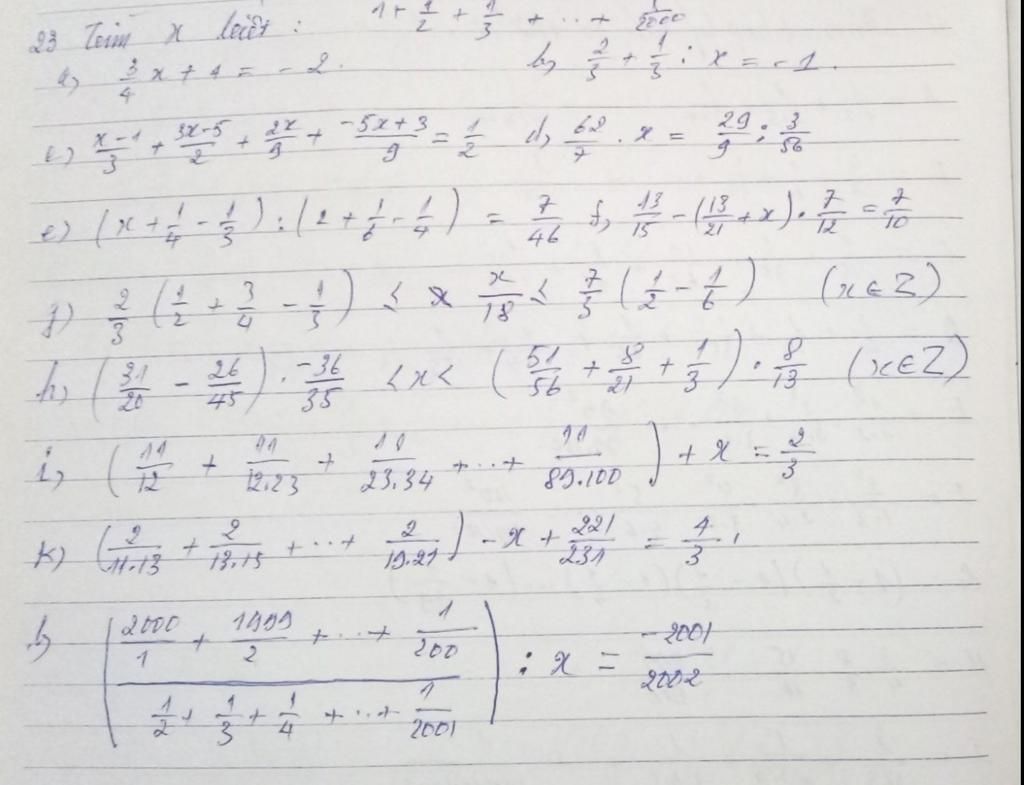 1 + 1/2 + 1/3 + ... + 1/2000
23 Tìm x biết :
a) 3/4 x + 1 = -2. b) 2/3 + 1/3 : x = -1.
c) x-1/3 + 3x-5/2 + 2x/9 + -5x+3/9 = 1/2 d) 62/7 . x = 29/9 : 3/56
e) (x + 1/4 - 1/3) : (2 + 1/6 - 1/4) = 7/46 f) 13/15 - (13/21 + x) . 7/12 = 7/10
g) 2/3 (1/2 + 3/4 - 1/3) ≤ x/18 ≤ 7/3 (1/2 - 1/6) (x ∈ Z)
h) (31/20 - 26/45) . -36/35 < x < (51/56 + 8/21 + 1/3) . 8/13 (x ∈ Z)
i) (11/12 + 11/12.23 + 11/23.34 + ... + 11/89.100) + x = 2/3
k) (2/11.13 + 2/13.15 + ... + 2/19.21) - x + 221/231 = 4/3.
l) (2000/1 + 1999/2 + ... + 1/200
1/2 + 1/3 + 1/4 + ... + 1/2001) : x = -2001/2002